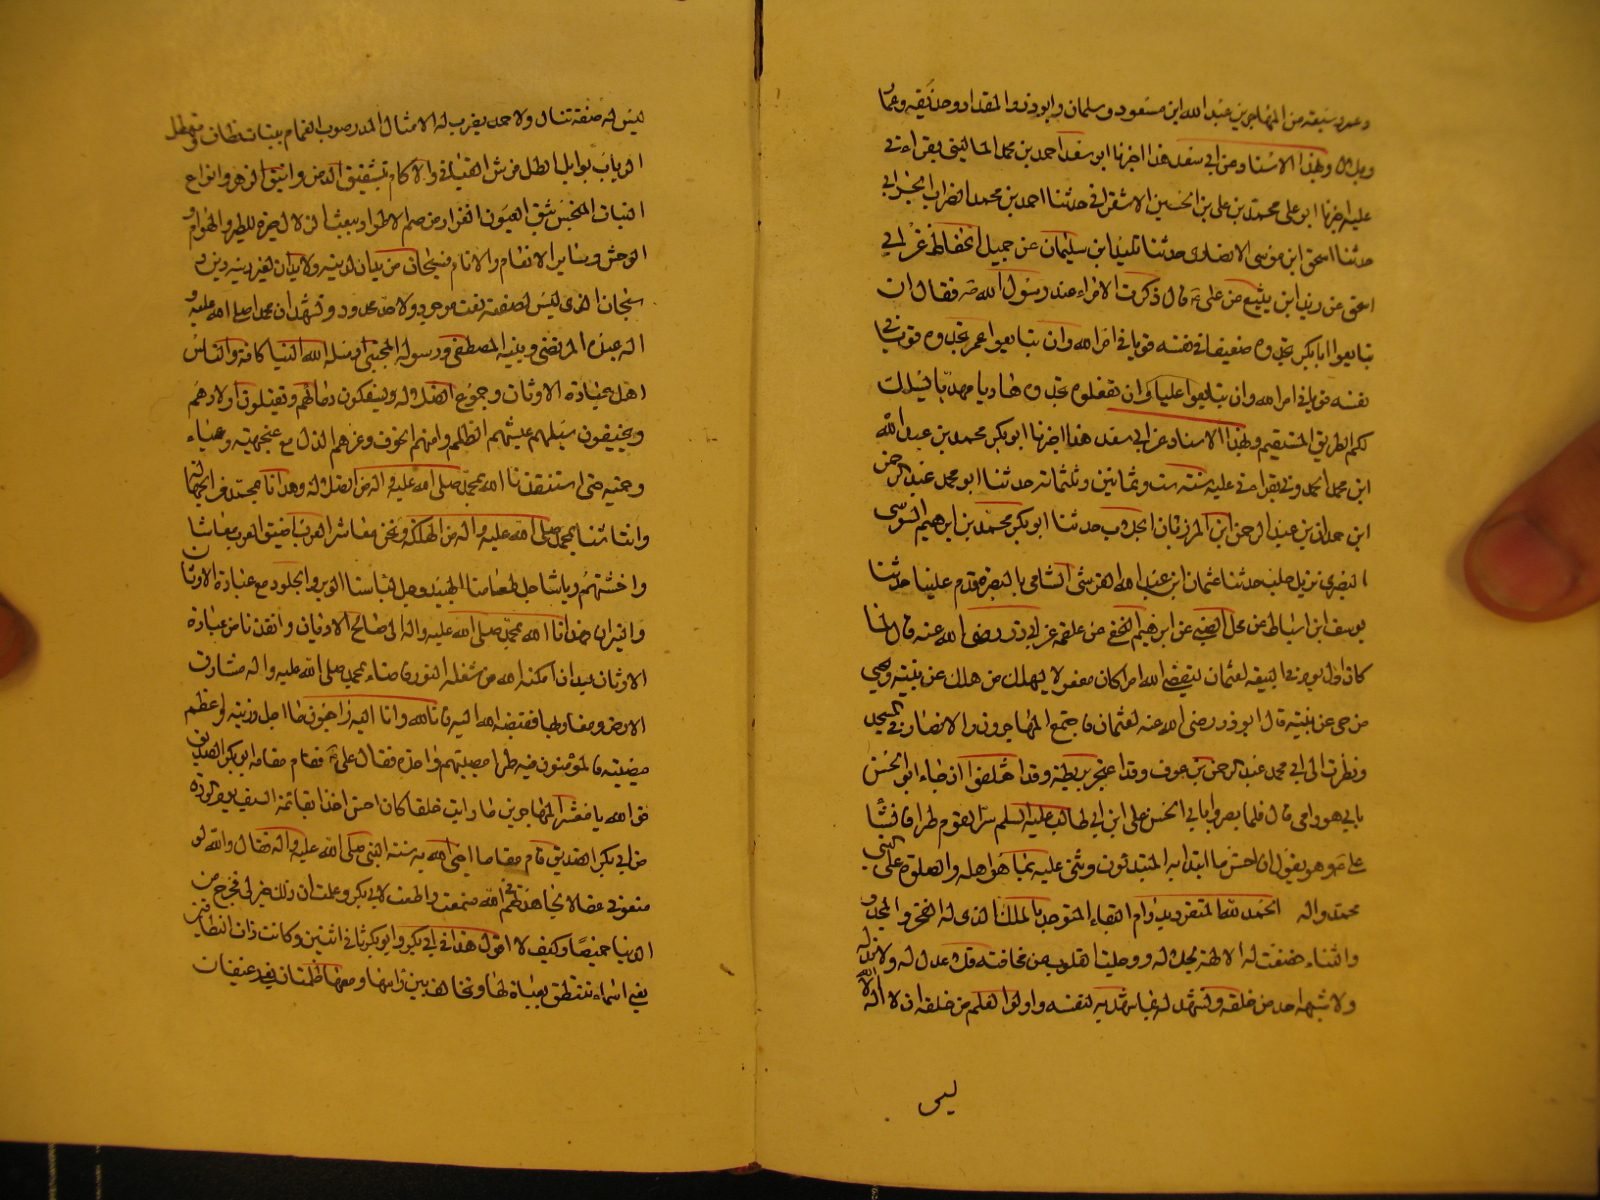 وعدد سبعة من المهاجرين عبد الله ابن مسعود وسلمان وابوذر والمقداد وحذيفة وعمار
وبلال وبهذا الاسناد عن ابي سعد هذا اخبرنا ابو سعد احمد بن محمد الماليني بقراءتي
عليه اخبرنا ابو علي محمد بن علي بن الحسين الاسفرايني حدثنا احمد بن محمد الضراب
حدثنا اسحق ابن موسى الانصاري حدثنا تليد ابن سليمان عن جميل الخفاظ عن ابي
اسحق عن زيد ابن يثيع عن علي قال ذكرت الامراء عند رسول الله فقال ان
تبايعوا ابابكر تجدوه ضعيفا في نفسه قويا في امر الله وان تبايعوا عمر تجدوه قويا في
نفسه قويا في امر الله وان تبايعوا عليا ولن تفعلوه تجدوه هاديا مهديا يسلك
لكم الطريق المستقيم وبهذا الاسناد عن ابي سعد هذا اخبرنا ابو بكر محمد بن عبد الله
ابن محمد بقراءتي عليه سنة ست وثمانين وثلثمائة حدثنا ابو محمد عبد الرحمن
ابن حمدان بن عبد الرحمن ابن المرزبان الجلاب حدثنا ابو بكر محمد بن ابرهيم السوسي
البصري نزيل حلب حدثنا عثمان ابن عبد الله القرشي الشامي بالبصرة قدم علينا حدثنا
يوسف ابن اسباط عن محل الضبي عن ابرهيم النخعي عن علقمة عن ابي ذر رضي الله عنه قال لما
كان اول يوم في البيعة لعثمان ليقضي الله امرا كان مفعولا ليهلك من هلك عن بينة ويحيى
من حي عن بينة قال ابو ذر رضي الله عنه لعثمان فاجتمع المهاجرون والانصار في المسجد
ونظرت الى ابي محمد عبد الرحمن بن عوف وقد اعتجر بريطة وقد اختلفوا اذ جاء ابو الحسن
بابي هو وامي قال فلما بصروا بابي الحسن علي ابن ابي طالب عليه السلم سر القوم طرا فانشا
علي وهو يقول ان احسن ما ابتدا به المبتدئون ويثنى عليه بما هو اهله والصلوة على النبي
محمد واله الحمد لله المتفرد بدوام البقاء المتوحد بالملك الذي له الفخر والمجد و
والثناء خضعت له الالهة بجلاله ووجلت القلوب من مخافته فلا عدل له ولا ند له
ولا شبهه احد من خلقه ونشهد له بما شهد به لنفسه واولوا العلم من خلقه ان لا اله الا الله
ليس
ليس له صفة تنال ولا حد يضرب له الامثال المدر صوب الغمام
الرباب بوابل الطل فرش الفيافي والاكام بتشقيق الدمن وانيق الزهر وانواع
النبات المنبجس بثق العيون الغزار من صم الاطواد يبعث الزلال حيوة للطير والهوام و
الوحش وساير الانعام والانام فسبحان من يدان لدينه ولا يدان لغير دينه دين و
سبحان الذي ليس لصفته نعت موجود ولا حد محدود ونشهد ان محمدا صلى الله عليه و
اله عبده المرتضى ونبيه المصطفى ورسوله المجتبى ارسله الله الينا كافة والناس
اهل عبادة الاوثان وجموع الضلالة ويسفكون دمائهم ويقتلون اولادهم
ويخيفون سبلهم عيشهم الظلم وامنهم الخوف وعزهم الذل مع عنجهية وعمياء
وحمية حتى استنقذنا الله بمحمد صلى الله عليه واله من الضلالة وهدانا بمحمد من الجهالة
وانتاشنا بمحمد صلى الله عليه واله من الهلكة ونحن معاشر العرب اضيق العرب معاشا
واخشنهم رياشا جل طعامنا الهبيد وجل لباسنا الوبر والجلود مع عبادة الاوثان
والنيران فهدانا الله بمحمد صلى الله عليه واله الى صالح الاديان وانقذنا من عبادة
الاوثان بعد ان امكنه الله من شعلة النور فاضاء بمحمد صلى الله عليه واله مشارق
الارض ومغاربها فقبضه الله اليه فانا لله وانا اليه راجعون فما اجل رزيته واعظم
مصيبته فالمؤمنون فيه طرا مصيبتهم واحدة فقال علي فقام مقامه ابو بكر الصديق
فوالله يا معشر المهاجرين ما رايت خليفة كان احسن اخذا بقائمة السيف يوم الردة
من ابي بكر الصديق قام مقاما احيى الله به سنة النبي صلى الله عليه واله فقال والله لو
منعوني عقالا لجاهدتهم في الله فسمعت واطعت لابي بكر وعلمت ان ذلك خير لي فخرج من
الدنيا خميصا وكيف لا اقول هذا في ابي بكر وابو بكر ثاني اثنين وكانت ذات النطاقين
يعني اسماء تنتطق بعباءة لها وتخالف بين راسها ومعها